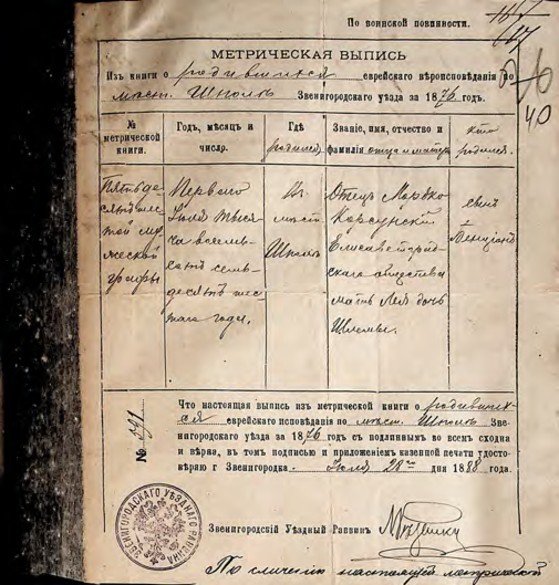 По воинской повинности.
МЕТРИЧЕСКАЯ ВЫПИСЬ
Изъ книги о родившихся еврейскаго вѣроисповѣданія по
мѣст. Шполѣ Звенигородскаго уѣзда за 1876 годъ.
№ метрической книги.
Годъ, мѣсяцъ и число.
Гдѣ родился
Званіе, имя, отчество и фамилія отца и матери
кто родился.
Перваго
Іюля тыся-
ча восемь-
сотъ семь-
десятъ шес-
таго года.
Въ
мѣст
Шполѣ
Отецъ Мордко
Корсунскій
Елисаветград-
скаго общества
мать Лея дочь
Шлемы.
сынъ
Бенціонъ
№ 591
Что настоящая выпись изъ метрической книги о родивших-
ся еврейскаго исповѣданія по мѣст. Шполѣ Зве-
нигородскаго уѣзда за 1876 годъ съ подлиннымъ во всемъ сходна
и вѣрна, въ томъ подписью и приложеніемъ казенной печати удосто-
вѣряю г Звенигородка. Іюля 28 дня 1888 года.
Звенигородскій Уѣздный Раввинъ
По сличенію настоящей метрической